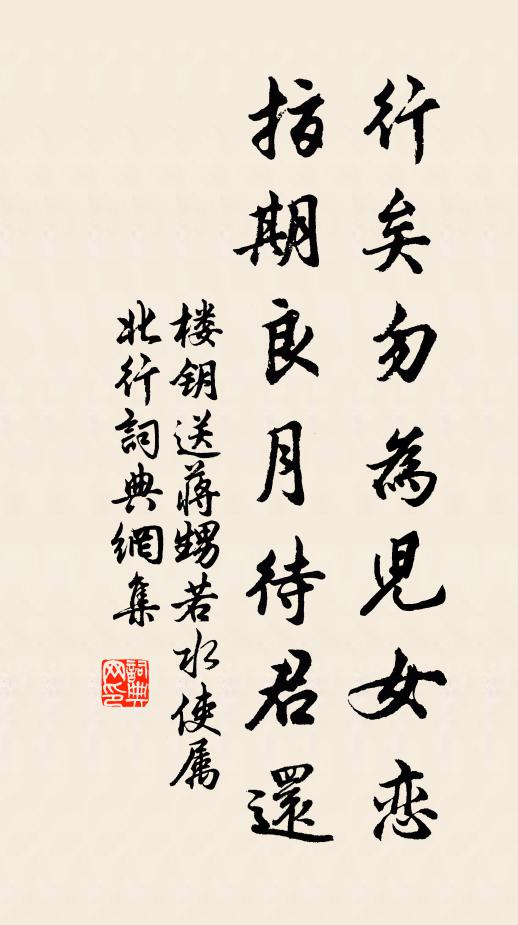 行矣勿為児女恋
指期良月待君還
楼钥送蒋甥若水使属
北行詞典網集
詞典网印